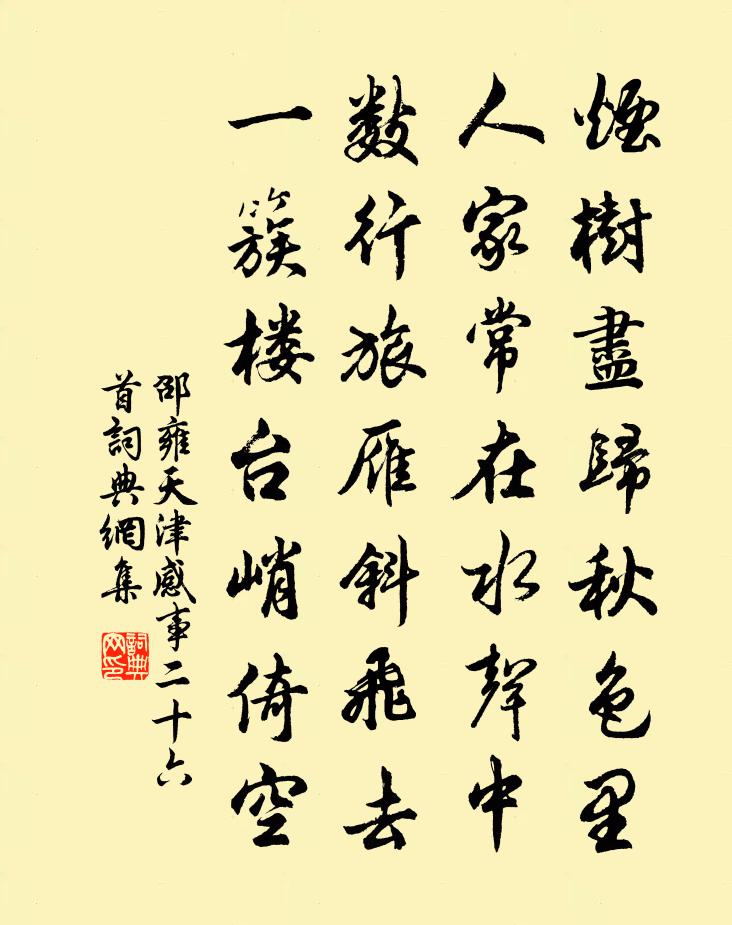 煙樹盡歸秋色里
人家常在水聲中
數行旅雁斜飛去
一簇楼台峭倚空
邵雍天津感事二十六
首詞典網集
詞典網印